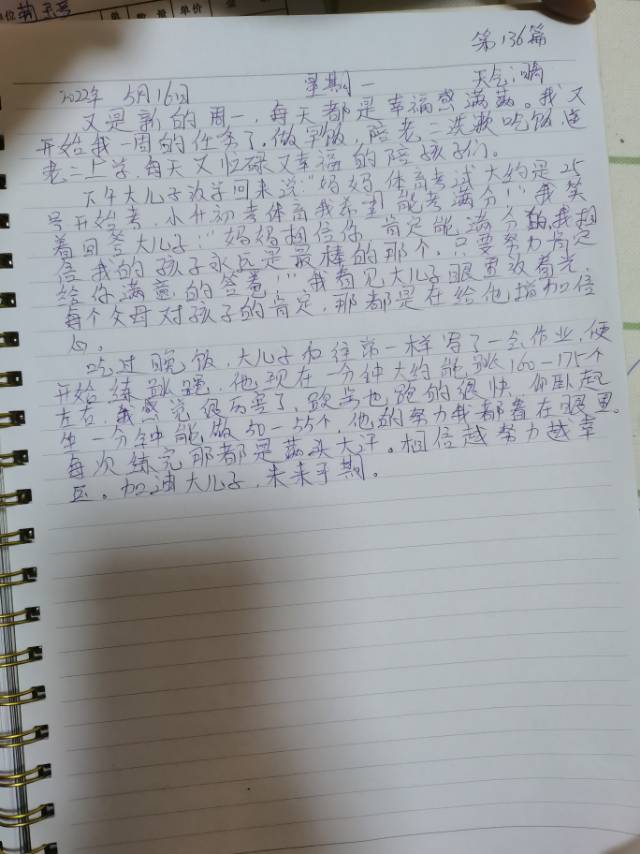 单 数量 单价 金
第136篇
2022年 5月16日 星期一 天气:晴
又是新的周一,每天都是幸福感满满。我又
开始我一周的任务了,做早饭,陪老二洗漱吃饭,送
老二上学,每天又忙碌又幸福的陪孩子们。
下午大儿子放学回来说:"妈妈,体育考试大约是25
号开始考,小升初考体育我希望能考满分!"我笑
着回答大儿子:"妈妈相信你,肯定能满分的,我相
信我的孩子永远是最棒的那个,只要努力肯定
给你满意的答卷!"我看见大儿子眼里放着光,
每个父母对孩子的肯定,那都是在给他增加信
心。
吃过晚饭,大儿子和往常一样写了一会作业,便
开始练跳绳,他现在一分钟大约能跳160-175个
左右,我感觉很厉害了,跑步也跑的很快,仰卧起
坐一分钟能做50-55个,他的努力我都看在眼里。
每次练完那都是满头大汗。相信越努力越幸
运。加油大儿子,未来可期。